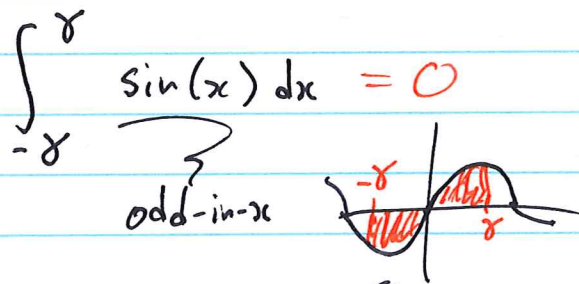 ∫_{-γ}^{γ} sin(x) dx = 0
odd-in-x
-γ γ